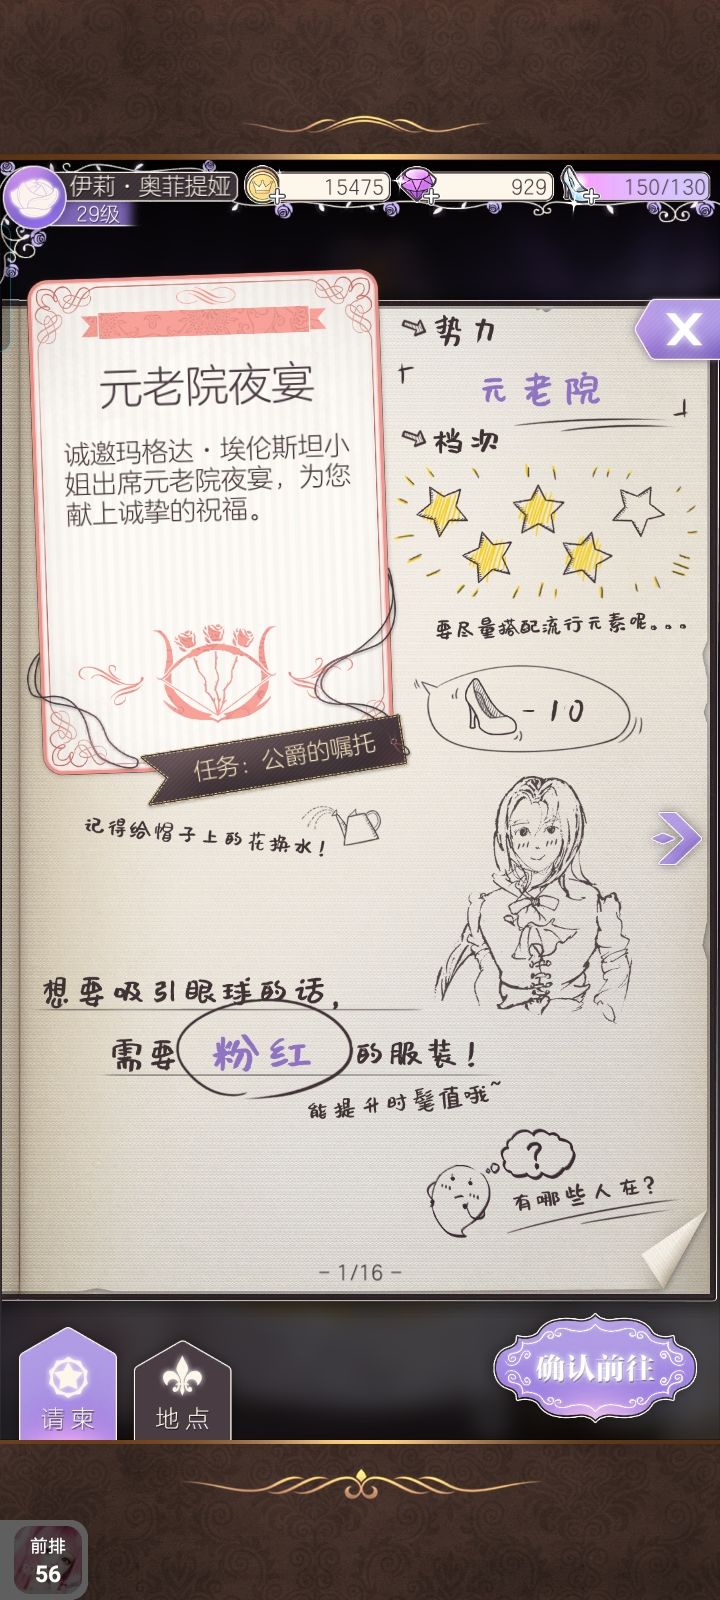 伊莉·奥菲提娅
29级
15475
929
150/130
元老院夜宴
诚邀玛格达·埃伦斯坦小
姐出席元老院夜宴，为您
献上诚挚的祝福。
任务：公爵的嘱托
势力
元老院
档次
要尽量搭配流行元素呢。。。
-10
记得给帽子上的花换水！
想要吸引眼球的话，
需要 粉红 的服装！
能提升时髦值哦~
?
有哪些人在？
- 1/16 -
请柬
地点
确认前往
前排
56